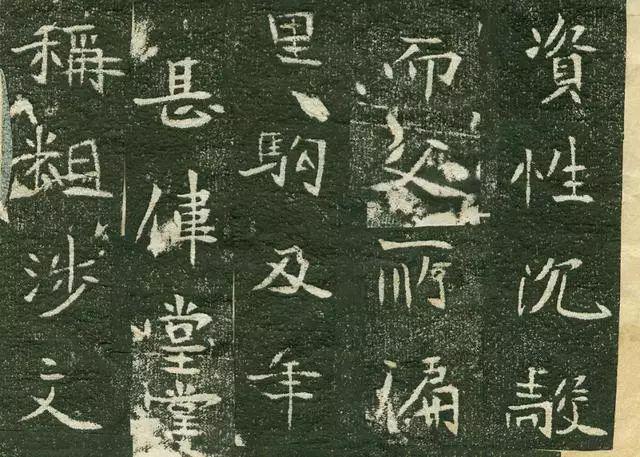 資性沉毅
而所
里駒及年
甚偉堂堂
稱粗涉文